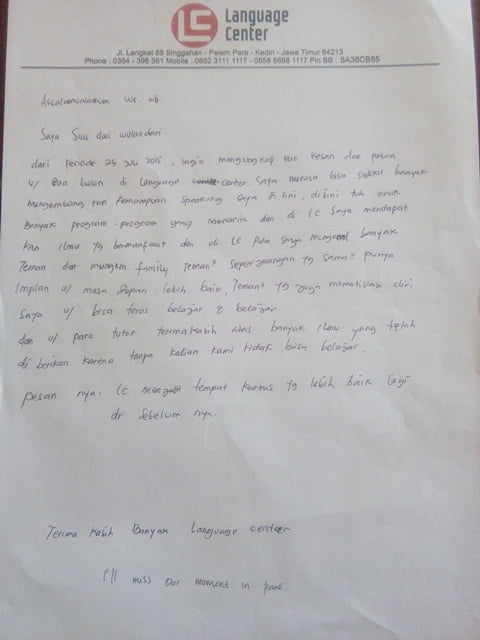 LC Language
Center
Jl. Langkat 88 Singgahan - Pelem Pare - Kediri - Jawa Timur 64213
Phone : 0354 - 396 561 Mobile : 0852 3111 1117 - 0858 8688 1117 Pin BB : 5A38CB55
Assalamualaikum Wr. Wb.
Saya Suci dwi wulandari
dari Periode 25 Juli 2015, ingin mengungkap kan kesan dan pesan
u/ bulan di Language center. Saya merasa bisa sedikit banyak
mengembang kan kemampuan speaking saya disini, disini tuh enak
Banyak program-program yang menarik dan di LC Saya mendapat
kan ilmu yg bermanfaat dan di LC pula saya mengenal banyak
Teman dan mungkin family, teman" seperjuangan yg sama" punya
Impian u/ masa depan lebih baik, Teman" yg juga memotivasi diri
Saya u/ bisa terus belajar & belajar
dan u/ para tutor terima kasih atas banyak ilmu yang telah
di berikan karena tanpa kalian kami tidak bisa belajar.
pesan nya : LC menjadi tempat kursus yg lebih baik lagi
dr sebelum nya.
Terima kasih Banyak Language center
I'll miss our moment in pare.